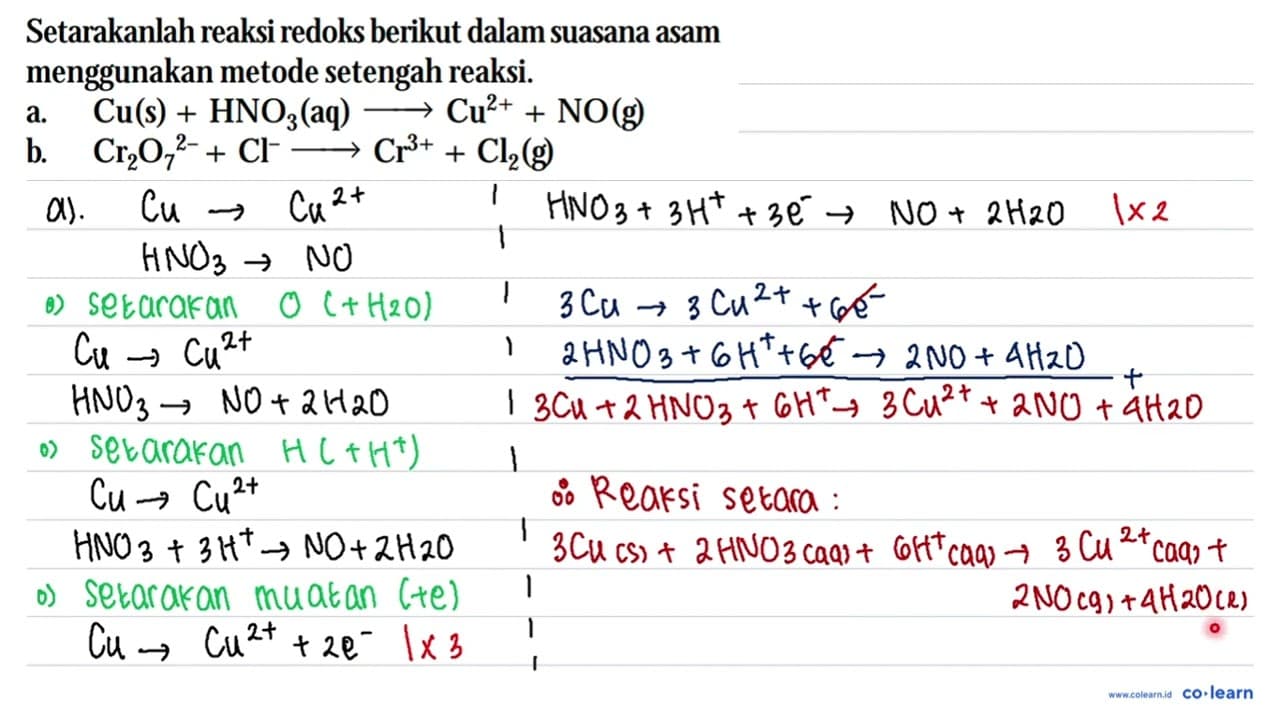 Setarakanlah reaksi redoks berikut dalam suasana asam
menggunakan metode setengah reaksi.
a. Cu(s) + HNO₃(aq) ⟶ Cu²⁺ + NO(g)
b. Cr₂O₇²⁻ + Cl⁻ ⟶ Cr³⁺ + Cl₂(g)
a). Cu → Cu²⁺
HNO₃ → NO
o) setarakan O (+H₂O)
Cu → Cu²⁺
HNO₃ → NO + 2H₂O
o) setarakan H (+H⁺)
Cu → Cu²⁺
HNO₃ + 3H⁺ → NO + 2H₂O
o) setarakan muatan (+e)
Cu → Cu²⁺ + 2e⁻ |x 3
HNO₃ + 3H⁺ + 3e⁻ → NO + 2H₂O |x 2
3Cu → 3Cu²⁺ + 6e⁻
2HNO₃ + 6H⁺ + 6e⁻ → 2NO + 4H₂O
+
3Cu + 2HNO₃ + 6H⁺ → 3Cu²⁺ + 2NO + 4H₂O
∴ Reaksi setara :
3Cu (s) + 2HNO₃ (aq) + 6H⁺ (aq) → 3Cu²⁺ (aq) +
2NO (g) + 4H₂O (l)
www.colearn.id co·learn